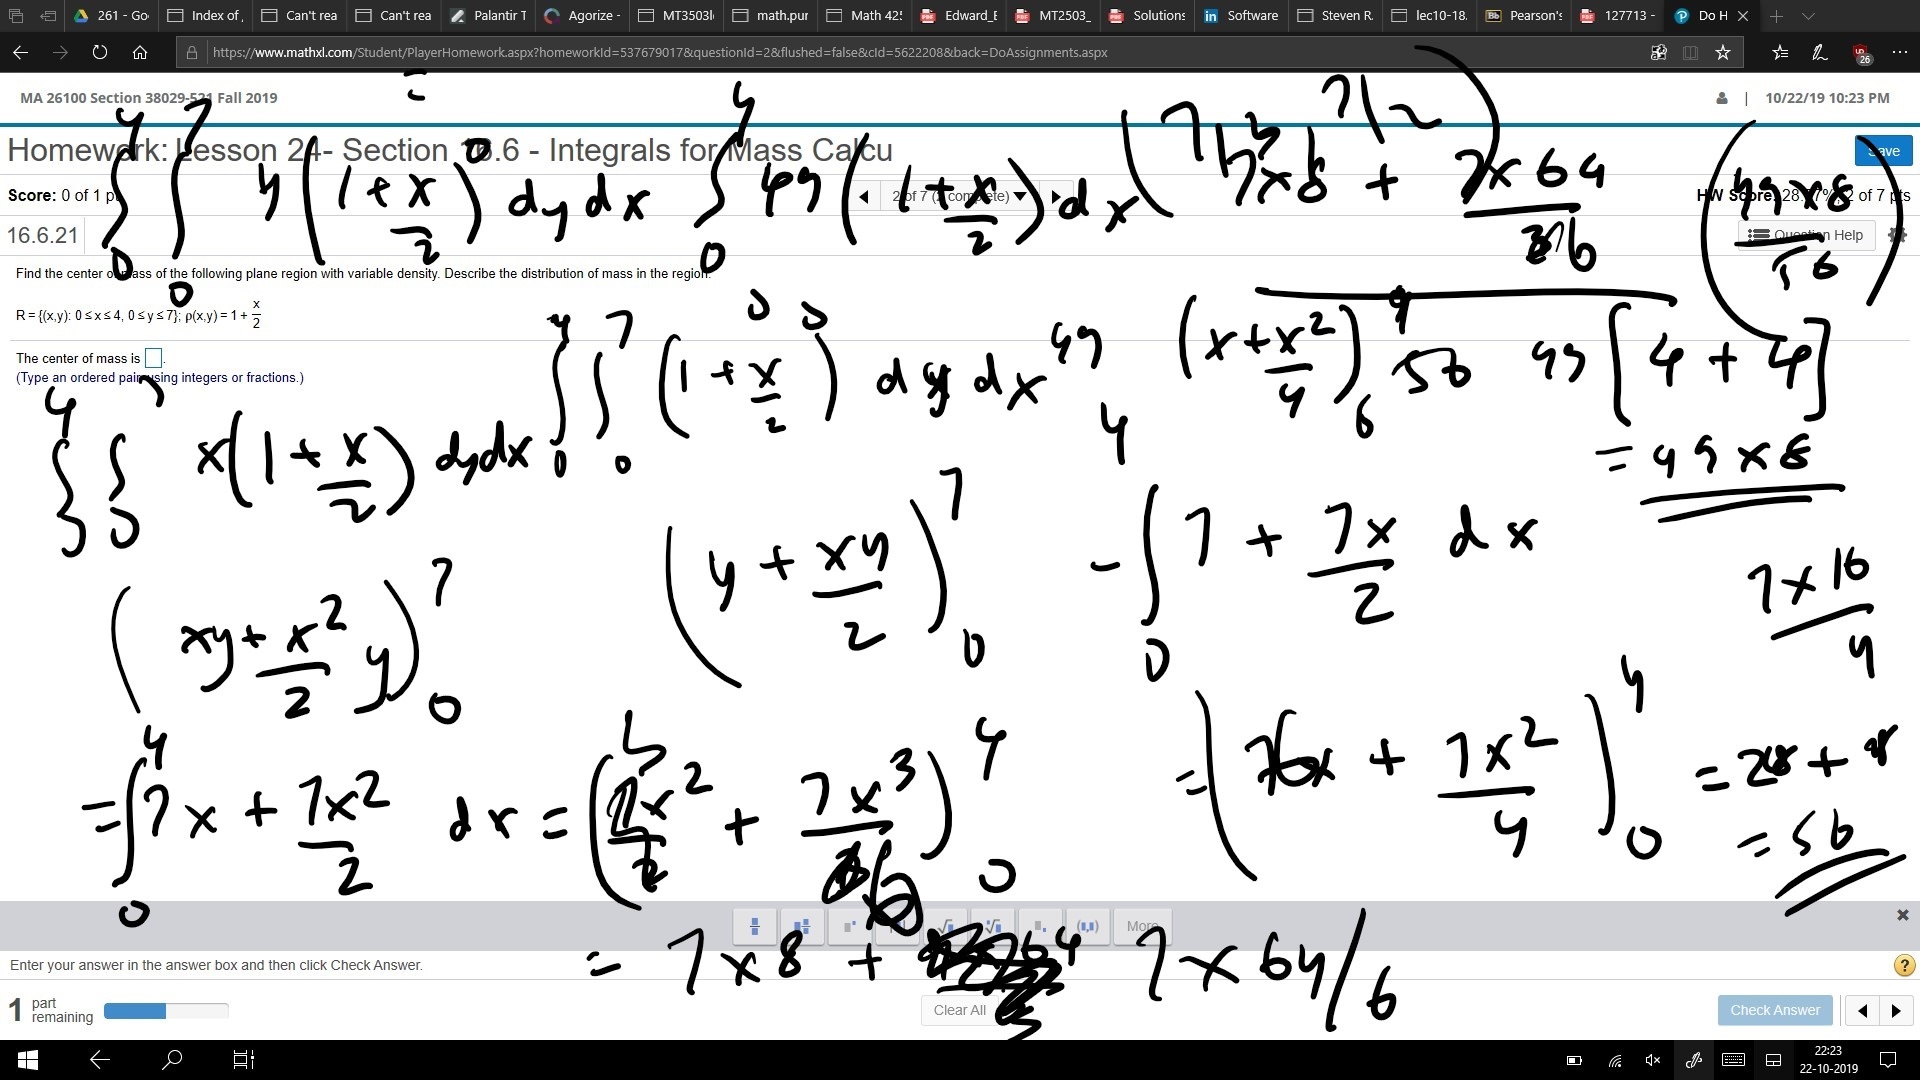 261 - Go
Index of
Can't rea
Can't rea
Palantir T
Agorize -
MT3503l
math.pur
Math 425
Edward_E
MT2503_
Solutions
Software
Steven R.
lec10-18.
Pearson's
127713 -
Do H
https://www.mathxl.com/Student/PlayerHomework.aspx?homeworkId=537679017&questionId=2&flushed=false&cId=5622208&back=DoAssignments.aspx
26
MA 26100 Section 38029-521 Fall 2019
10/22/19 10:23 PM
Homework: Lesson 24- Section 16.6 - Integrals for Mass Calcu
Save
Score: 0 of 1 pt
2 of 7 (2 complete)
HW Score: 28.57%, 2 of 7 pts
16.6.21
Question Help
∫₀⁴ ∫₀⁷ y(1 + x/2) dy dx
∫₀⁴ 49 (1 + x/2) dx
7x8 + 7x64/6
(49x8/56)
Find the center of mass of the following plane region with variable density. Describe the distribution of mass in the region.
R = {(x,y): 0 ≤ x ≤ 4, 0 ≤ y ≤ 7}; ρ(x,y) = 1 + x/2
The center of mass is
(Type an ordered pair, using integers or fractions.)
∫₀⁴ ∫₀⁷ (1 + x/2) dy dx
49 (x + x²/4)
56
49 [4 + 4]
= 49 x 8
x(1 + x/2) dy dx
(y + xy/2)₀⁷
- ∫₀⁴ 7 + 7x/2 dx
7x16/4
(xy + x²/2 y)₀⁷
= ∫₀⁴ 7x + 7x²/2 dx = (7x²/2 + 7x³/6)₀⁴
= (7x + 7x²/4)₀⁴
= 28 + 28
= 56
= 7 x 8 + 7 x 64/6
More
Enter your answer in the answer box and then click Check Answer.
1 part remaining
Clear All
Check Answer
22:23
22-10-2019